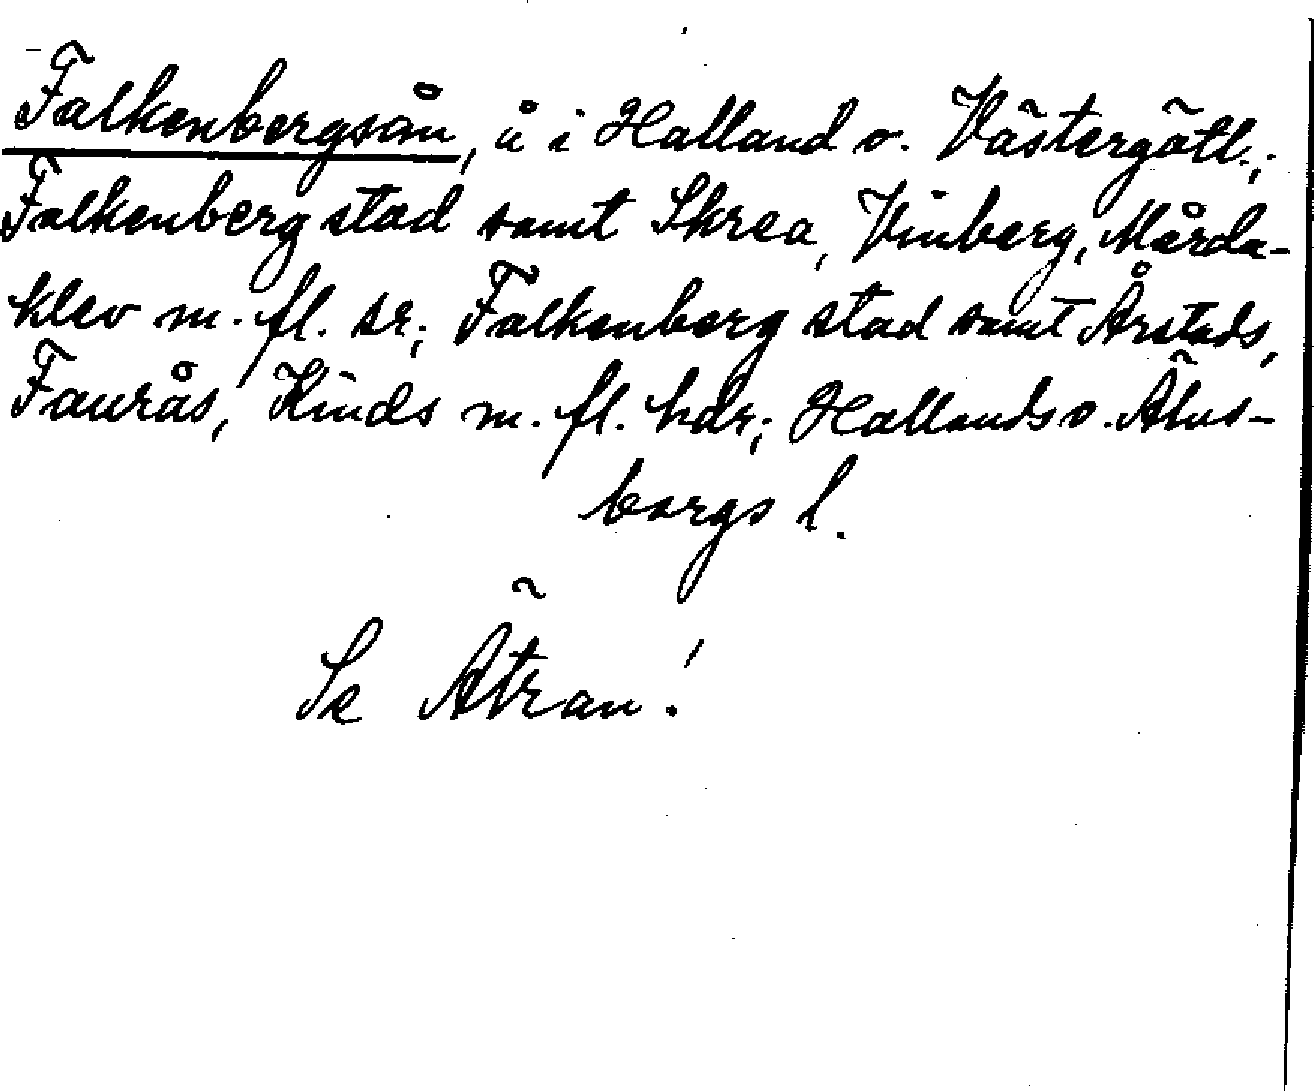 Falkenbergsån, å i Halland o. Västergötl.;
Falkenberg stad samt Skrea, Vinberg, Mårda-
klev m. fl. sr; Falkenberg stad samt Årstads,
Faurås, Kinds m. fl. hdr; Hallands o. Älvs-
borgs l.
Se Ätran!